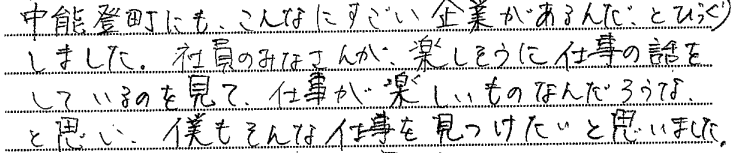 中能登町にも、こんなにすごい企業があるんだ、とびっくり
しました。社員のみなさんが、楽しそうに仕事の話を
しているのを見て、仕事が楽しいものなんだろうな、
と思い、僕もそんな仕事を見つけたいと思いました。